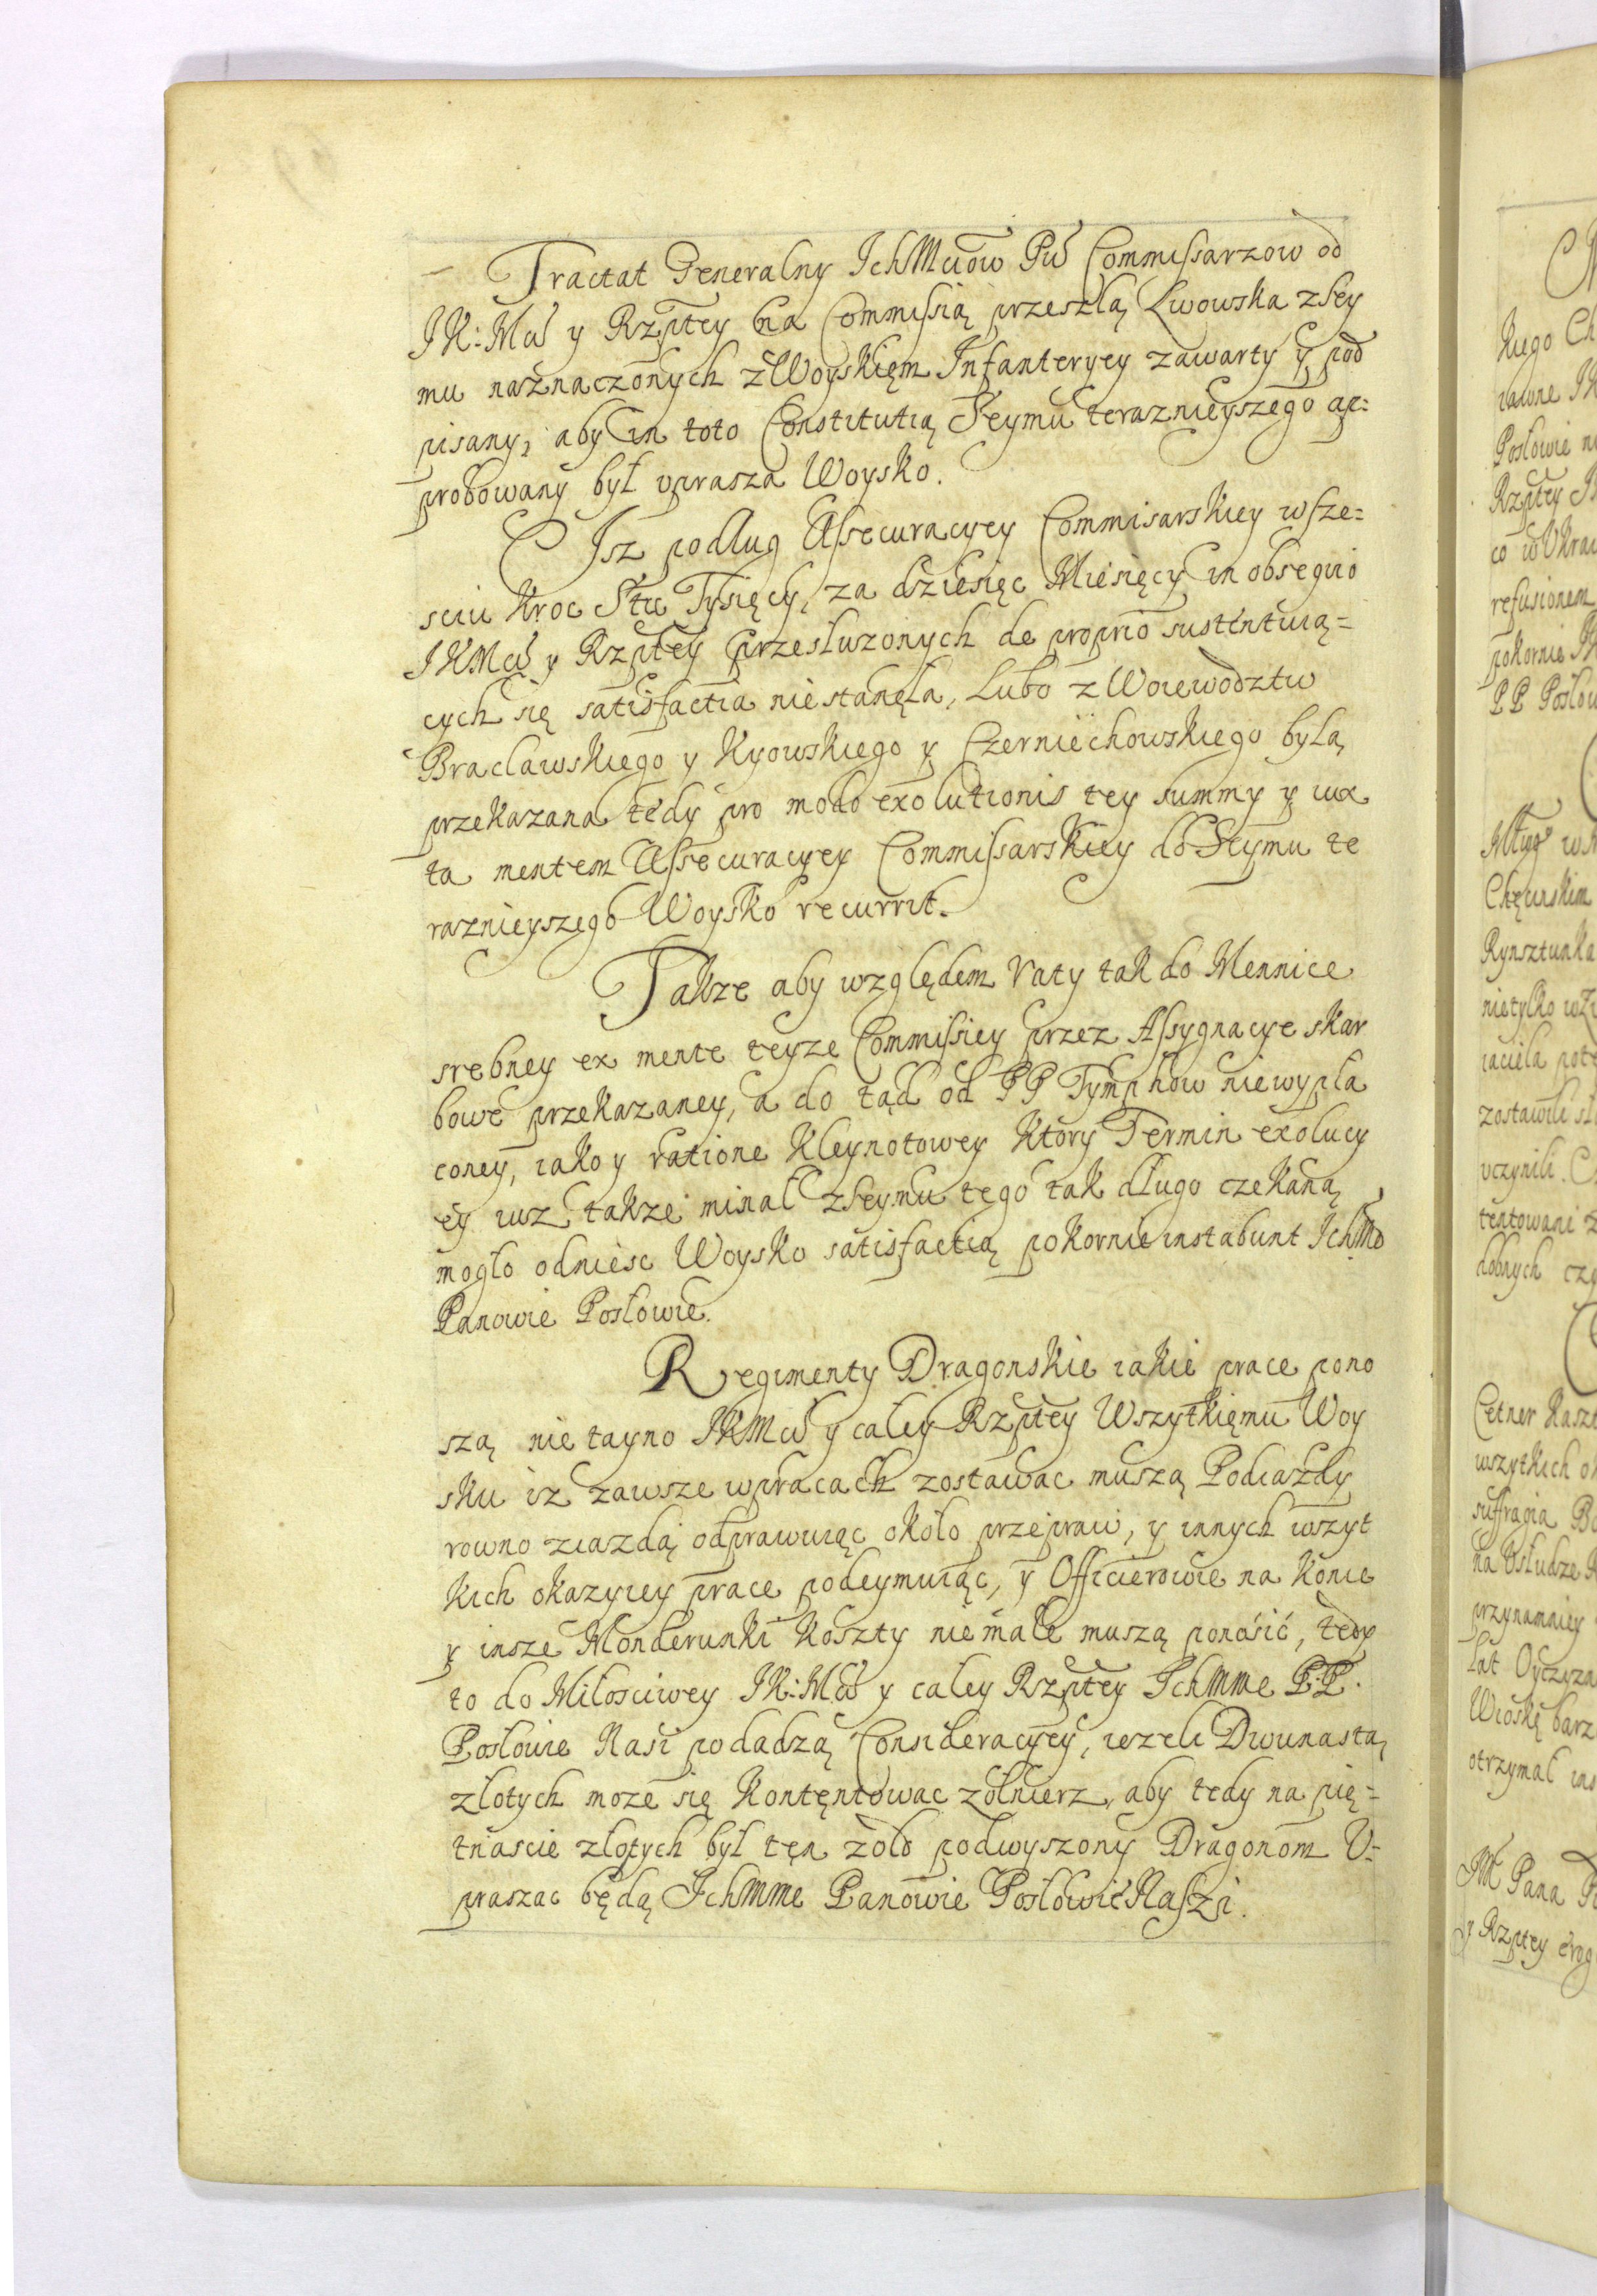 Tractat Generalny IchMciow Pw Commissarzow od
JK: Mci y Rzptey na Commisią przeszłą Lwowska z Sey
mu naznaczonych z Woyskięm Infanteryey zawarty y pod
pisany, aby in toto Constitutią Seymu teraznieyszego ap:
probowany był uprasza Woysko.
Isz podług Assecuracyey Commisarskiey w sze=
sciu Kroc Stu Tysięcy, za dziesięc Miesięcy in obseqio
JKMci y Rzptey przesłuzonych de proprio sustentuią=
cych się satisfactia nie stanęła, Lubo z Woiewodztw
Braclawskiego y Kyowskiego y Czerniechowskiego była
przekazana tedy pro modo exolutionis tey summy y iux
ta mentem Assecuracyey Commissarskiey do Seymu te
raznieyszego Woysko recurrit.
Takze aby względem raty tak do Mennice
srebney ex mente teyze Commissiey przez Assygnacye skar
bowe przekazaney, a do tąd od PP Tymphow niewypla
coney, iako y ratione Kleynotowey Ktory Termin exolucy
ey iusz takze minał z Seymu tego tak długo czekaną
mogło odniesc Woysko satisfactią pokornie instabunt IchMo
Panowie Posłowie.
Regimenty Dragonskie iakie prace pono
szą nie tayno JKMci y całey Rzptey Wszytkięmu Woy
sku iz zawsze w pracach zostawac muszą Podiazdy
rowno z iazdą odprawuiąc około przepraw, y innych wszyt
kich okazyiey prace podeymuiąc, y Officierowie na Konie
y insze Monderunki Koszty niemałe muszą ponosić, tedy
to do Miłosciwey JK: Mci y całey Rzptey Ichmme P.P.
Posłowie Nasi podadzą Consideracyey, iezeli Dwunastą
złotych moze się Kontęntowac zołnierz, aby tedy na pię=
tnascie złotych był tęn zołd podwyszony Dragonom U=
praszac będą Ichmme Panowie Posłowie Naszi.